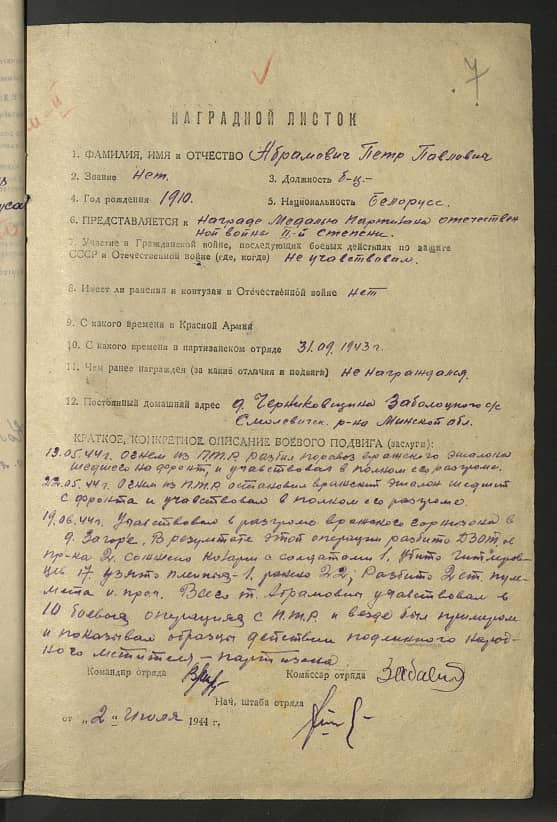 7
НАГРАДНОЙ ЛИСТОК
1. ФАМИЛИЯ, ИМЯ и ОТЧЕСТВО Абрамович Петр Павлович
2. Звание Нет. 3. Должность б-ц.-
4. Год рождения 1910. 5. Национальность Белорусс.
6. ПРЕДСТАВЛЯЕТСЯ к Награде Медалью Партизана отечествен
ной войны II-й степени.
7. Участие в Гражданской войне, последующих боевых действиях по защите
СССР и Отечественной войне (где, когда) Не учавствовал.
8. Имеет ли ранения и контузии в Отечественной войне нет
9. С какого времени в Красной Армии
10. С какого времени в партизанском отряде 31.09.1943 г.
11. Чем ранее награжден (за какие отличия и подвиги) Не награждался.
12. Постоянный домашний адрес д. Черниковщина Заболоцкого с/с
Смолевичск. р-на Минской обл.
КРАТКОЕ, КОНКРЕТНОЕ ОПИСАНИЕ БОЕВОГО ПОДВИГА (заслуги):
19.05.44г. Огнем из П.Т.Р. разбил паровоз вражеского эшалона
шедшего на фронт, и учавствовал в полном его разгроме.
22.05.44г. Огнем из П.Т.Р. остановил вражеский эшалон шедший
с фронта и учавствовал в полном его разгроме.
19.06.44г. Учавствовал в разгроме вражеского горнизона в
д. Загорье. В результате этой операции разбито ДЗОТ,
2. Сожжено казарм с солдатами 1. Убито гитлеров-
цев 17. узято пленных-1. ранено 22; Разбито 2 ст. пуле-
мета и проч. Всего т. Абрамович учавствовал в
10 боевых операциях с П.Т.Р. и везде был примером
и показывал образцы действий подлинного народ-
ного мстителя - партизана
Командир отряда Комиссар отряда
Нач. штаба отряда
от „2" Июля 1944 г.